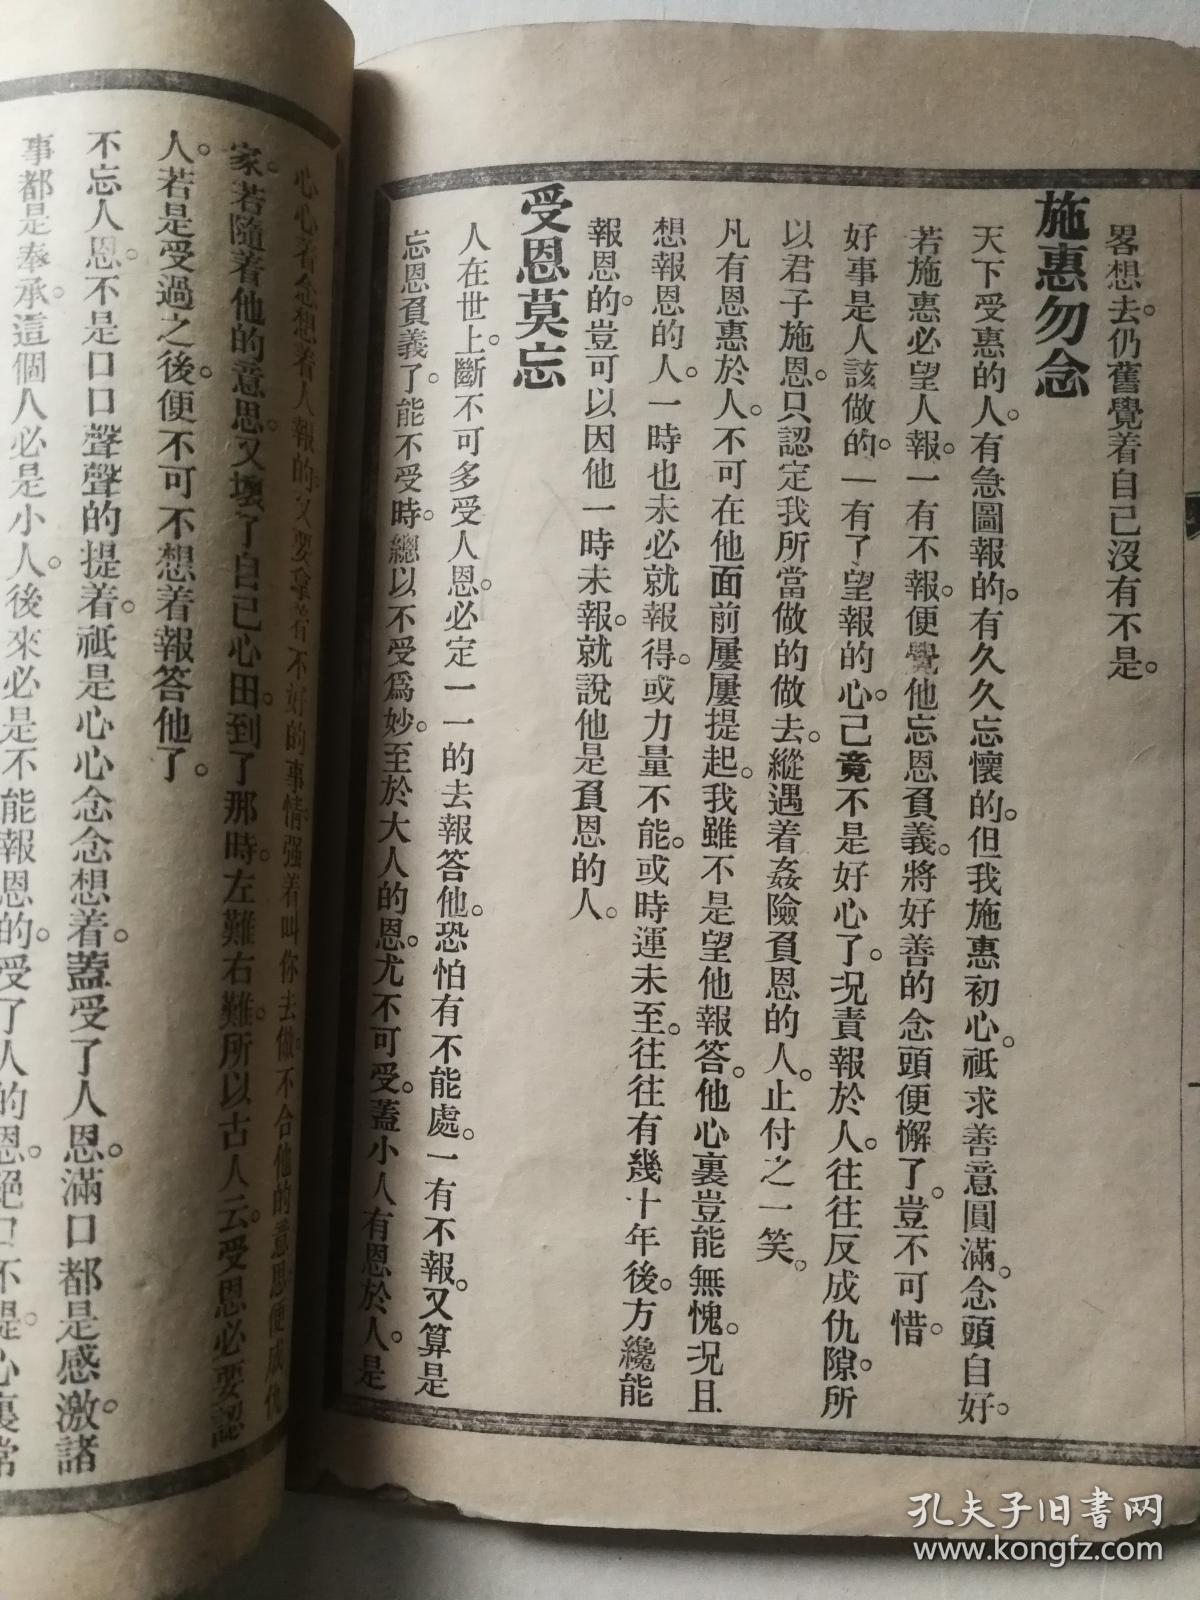 畧想去。仍舊覺着自己沒有不是。
施惠勿念
天下受惠的人。有急圖報的。有久久忘懷的。但我施惠初心。祗求善意圓滿。念頭自好。
若施惠必望人報。一有不報。便覺他忘恩負義。將好善的念頭便懈了。豈不可惜。
好事是人該做的。一有了望報的心。己竟不是好心了。况責報於人。往往反成仇隙。所
以君子施恩。只認定我所當做的做去。縱遇着姦險負恩的人。止付之一笑。
凡有恩惠於人。不可在他面前屢屢提起。我雖不是望他報答。他心裏豈能無愧。况且
想報恩的人。一時也未必就報得。或力量不能。或時運未至。往往有幾十年後。方纔能
報恩的。豈可以因他一時未報。就說他是負恩的人。
受恩莫忘
人在世上。斷不可多受人恩。必定一一的去報答他。恐怕有不能處。一有不報。又算是
忘恩負義了。能不受時。總以不受爲妙。至於大人的恩。尤不可受。蓋小人有恩於人。是
心心着念想着人報的。又要拿着不好的事情。强着叫你去做。不合他的意思。便成仇
家。若隨着他的意思。又壞了自己心田。到了那時。左難右難。所以古人云。受恩必要認
人。若是受過之後。便不可不想着報答他了。
不忘人恩。不是口口聲聲的提着。祗是心心念念想着。蓋受了人恩。滿口都是感激。諸
事都是奉承。這個人必是小人。後來必是不能報恩的。受了人的恩。絕口不提。心裏常
孔夫子旧书网
www.kongfz.com